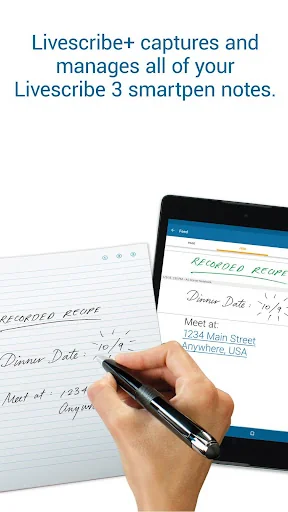 Livescribe+ captures and
manages all of your
Livescribe 3 smartpen notes.
Feed
RECORDED RECIPE
Dinner Date: 10/9
Meet at:
1234 Main Street
Anywhere, USA
RECORDED RECIPE
Dinner Date: 10/9
Meet at: 1234
Anywhere